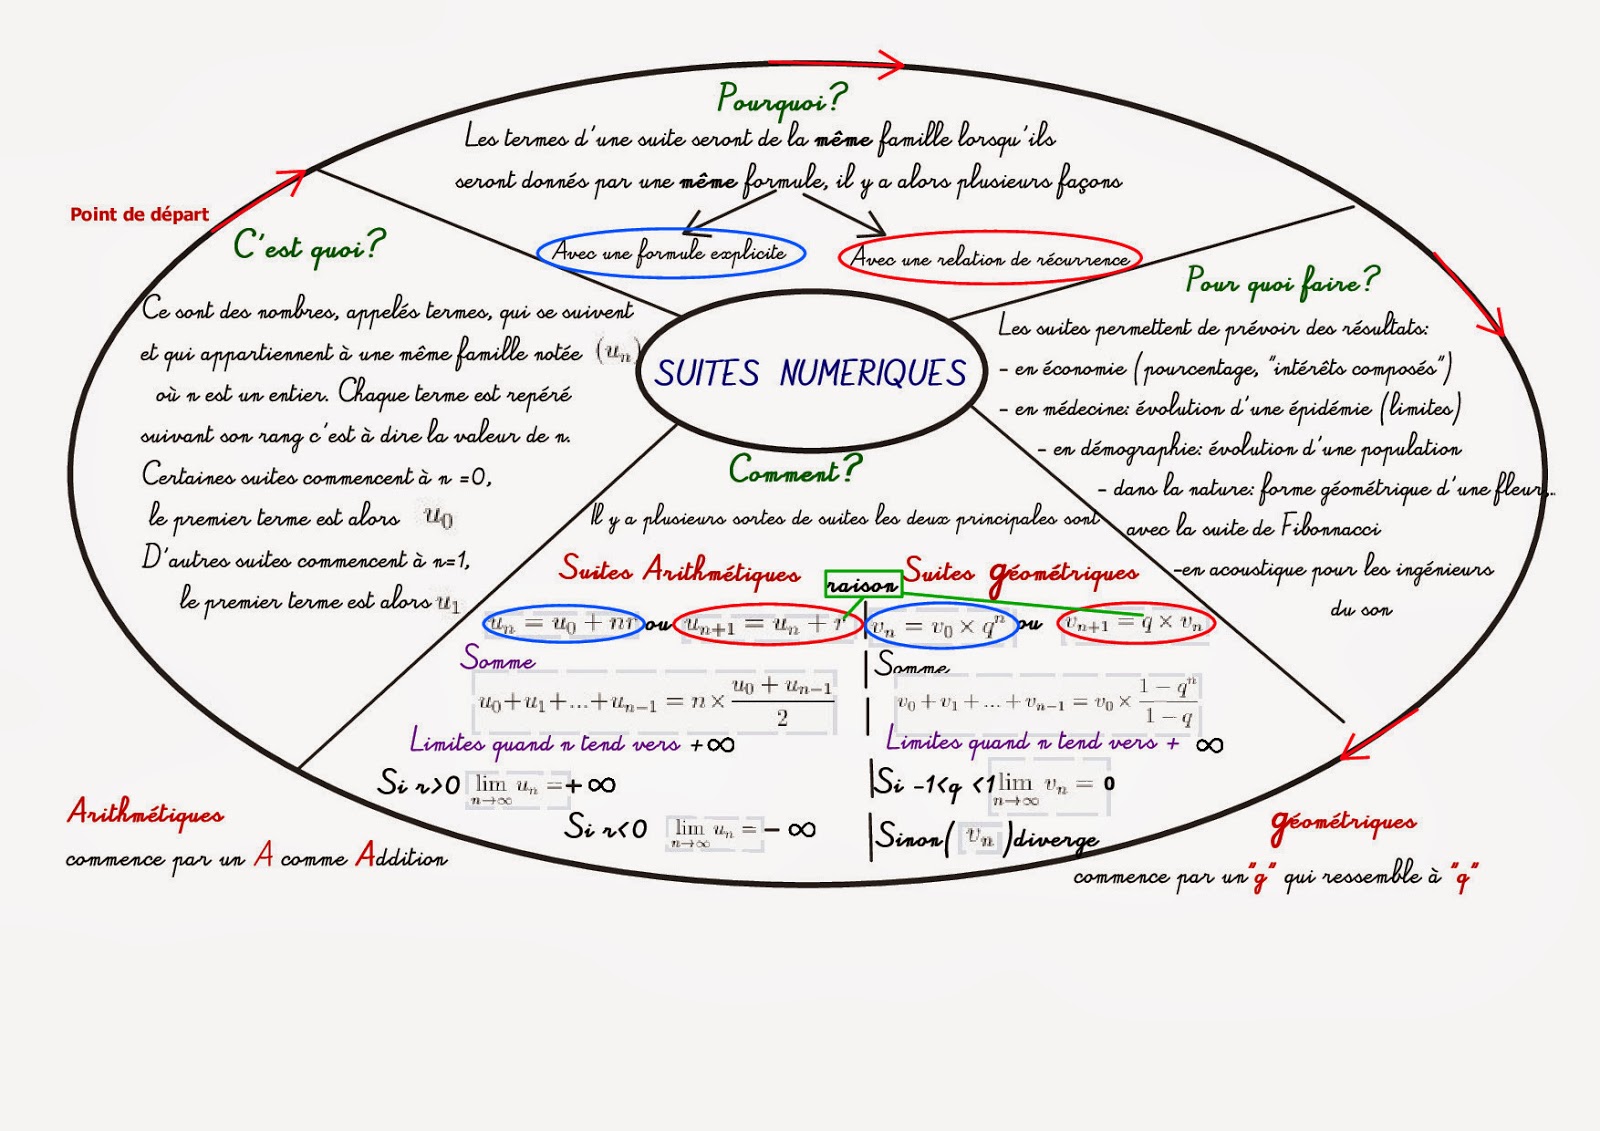 Point de départ
C'est quoi?
Ce sont des nombres, appelés termes, qui se suivent
et qui appartiennent à une même famille notée (u_n)
où n est un entier. Chaque terme est repéré
suivant son rang c'est à dire la valeur de n.
Certaines suites commencent à n =0,
le premier terme est alors u_0
D'autres suites commencent à n=1,
le premier terme est alors u_1
Pourquoi?
Les termes d'une suite seront de la même famille lorsqu'ils
seront donnés par une même formule, il y a alors plusieurs façons
Avec une formule explicite
Avec une relation de récurrence
SUITES NUMERIQUES
Pour quoi faire?
Les suites permettent de prévoir des résultats:
- en économie (pourcentage, "intérêts composés")
- en médecine: évolution d'une épidémie (limites)
- en démographie: évolution d'une population
- dans la nature: forme géométrique d'une fleur,..
avec la suite de Fibonnacci
-en acoustique pour les ingénieurs
du son
Comment?
Il y a plusieurs sortes de suites les deux principales sont
Suites Arithmétiques
raison
Suites géométriques
u_n = u_0 + nr ou u_{n+1} = u_n + r
Somme
u_0+u_1+...+u_{n-1} = n × (u_0 + u_{n-1})/2
Limites quand n tend vers +∞
Si r>0 lim n→∞ u_n =+∞
Si r<0 lim n→∞ u_n =- ∞
v_n = v_0 × q^n ou v_{n+1} = q × v_n
Somme
v_0 + v_1 + ... + v_{n-1} = v_0 × (1 - q^n)/(1 - q)
Limites quand n tend vers + ∞
Si -1<q <1 lim n→∞ v_n = 0
Sinon(v_n)diverge
Arithmétiques
commence par un A comme Addition
géométriques
commence par un"g" qui ressemble à "q"